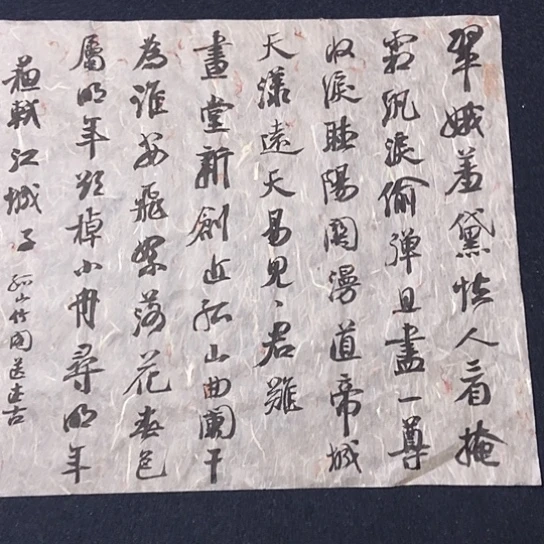 翠娥羞黛怯人看掩
霜紈淚偷彈且盡一尊
收淚聽陽關漫道帝城
天漾遠天易見、君難
畫堂新創近孤山曲闌干
為誰安飛絮落花春色
屬明年欲棹小舟尋明年
蘇軾江城子 孤山竹閣送述古